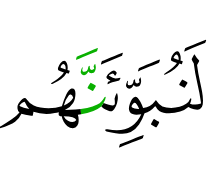 لَنُبَوِّئَنَّهُم